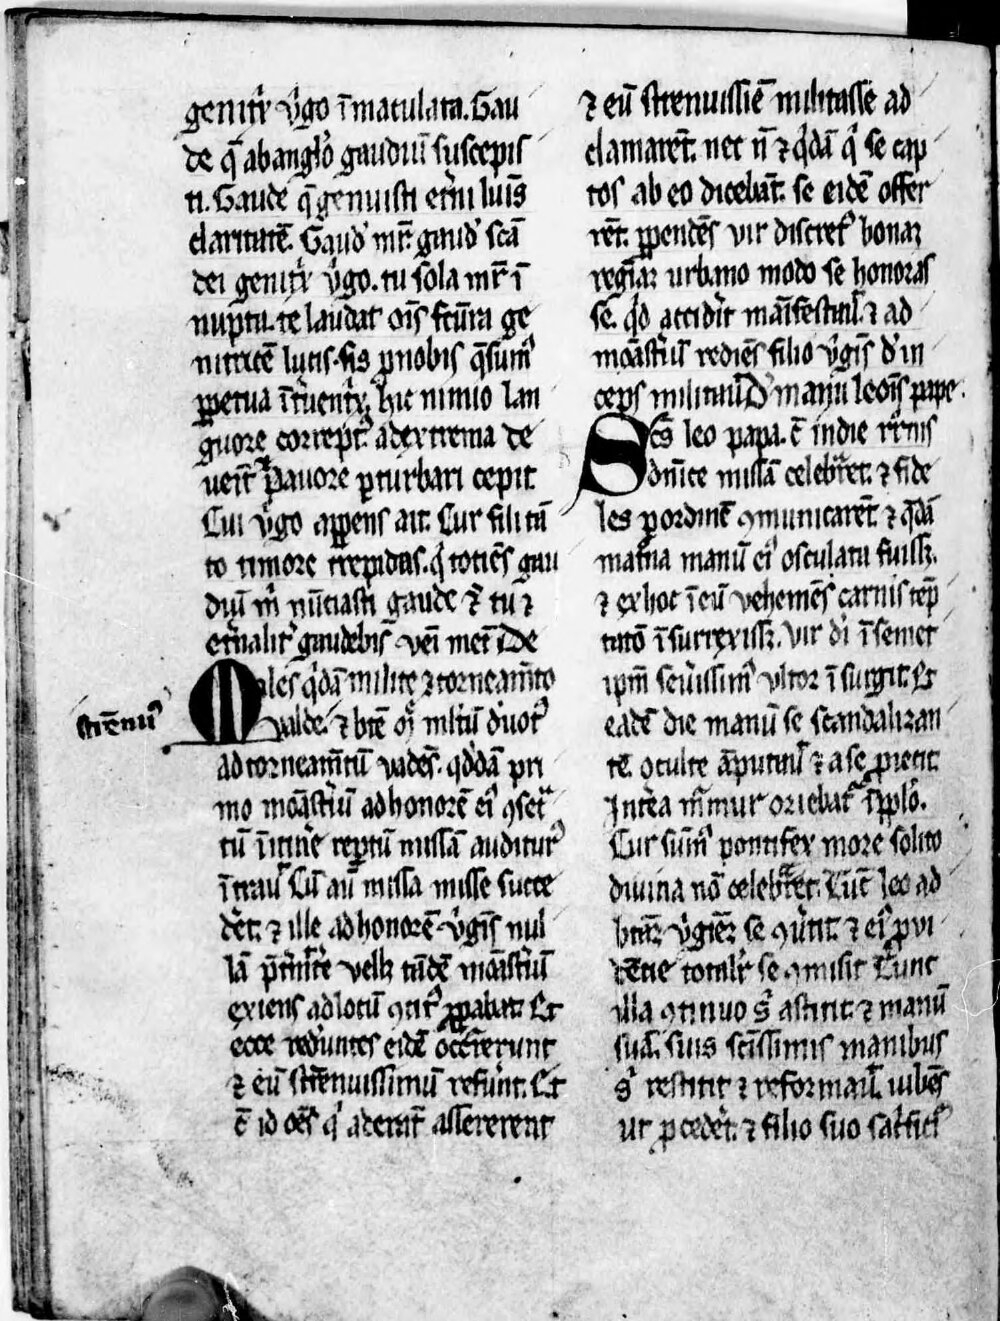 genitͥx v̾go īmaculata. Gau
de q̄ ab angl̾o gaudiū suscepis
ti. Gaude q̄ genuisti et̾ni luīs
claritatē. Gaud̾ mr̄. gaud̾ scā
dei genitͥx v̾go. tu sola mr̄ ī
nupta. te laudat oīs fc̄ura ge
nitricē lucis. sis ꝓ nobis q̄sum̾
ꝑpetua īt̾uentͥx. hic nimio lan
guore corrept̾. ad extrema de
ueīt̄ pauore ꝑturbari cepit
Cui v̾go apparens ait. Cur fili tā
to timore trepidas. qͥ totiēs gau
diū m̄ nūciasti gaude ⁊ tu ⁊
et̾nalit̾ gaudebis
Miles qͥdā milite ⁊ torneam̄to
valde ⁊ btē  d̾uot̾
strēnu̾
ad torneam̄tū vadēs. qd̾dā pri
mo moāst̾iū ad honorē ei̾ ꝯsecͣ
tū ī itine reꝑtū missā auditur̾
ītrauͥ. Cū aū missa misse succe
d̾et. ⁊ ille ad honorē v̾gīs nul
lā p̄t̾mitt̾e vellꝫ tādē moāst̾iū
exiens ad locū ꝯcit̾ ꝓꝑabat. Et
ecce red̾untes eidē occ̄rerunt
⁊ eū strēnuissimū refūnt. Et
c̄ id oēs qͥ aderāt assererent
⁊ eū strenuissīe militasse ad
clamarēt. nec n̄ ⁊ qͥdā qͥ se cap
tos ab eo dicebāt. se eidē offer
rēt. ꝑpendēs vir discret̾ bonaꝫ
regīaꝫ urbano modo se honoras
se. qd̾ accid̾it māifestauͥ. ⁊ ad
moāst̾iū rediēs filio v̾gīs d̾in
ceps militauͥ. D̾ manu leoīs pape.
Scs̄ leo papa. c̄ in die
dn̄ice missā celebͣret. ⁊ fide
les ꝑ ordinē ꝯmunicaret. ⁊ qͥdā
mat̾na manū ei̾ osculata fuissꝫ.
⁊ ex hoc ī eū vehemēs carnis tēp
tatō īsurrexissꝫ. vir d̾i ī semet
ip̄m seuissim̾ vltor īsurgit. Et
eadē die manū se scandalizan
tē. oculte āputauͥ ⁊ a se ꝓiecit.
Int̾ea m̄mur oriebat̾ ī pplo.
Cur sum̾ pontifex more solito
diuina nō celebͣret. Tūc leo ad
btāꝫ v̾giēꝫ se ꝯu̾tit. ⁊ ei̾ ꝓui
dentie totalit̾ se ꝯmisit. Tunc
illa ꝯtinuo s̾ astitit. ⁊ manū
suā. suis sc̄issimis manibus
s̾ restitit ⁊ reformauͥ. iubēs
ut ꝓced̾et. ⁊ filio suo sac̾fic̾